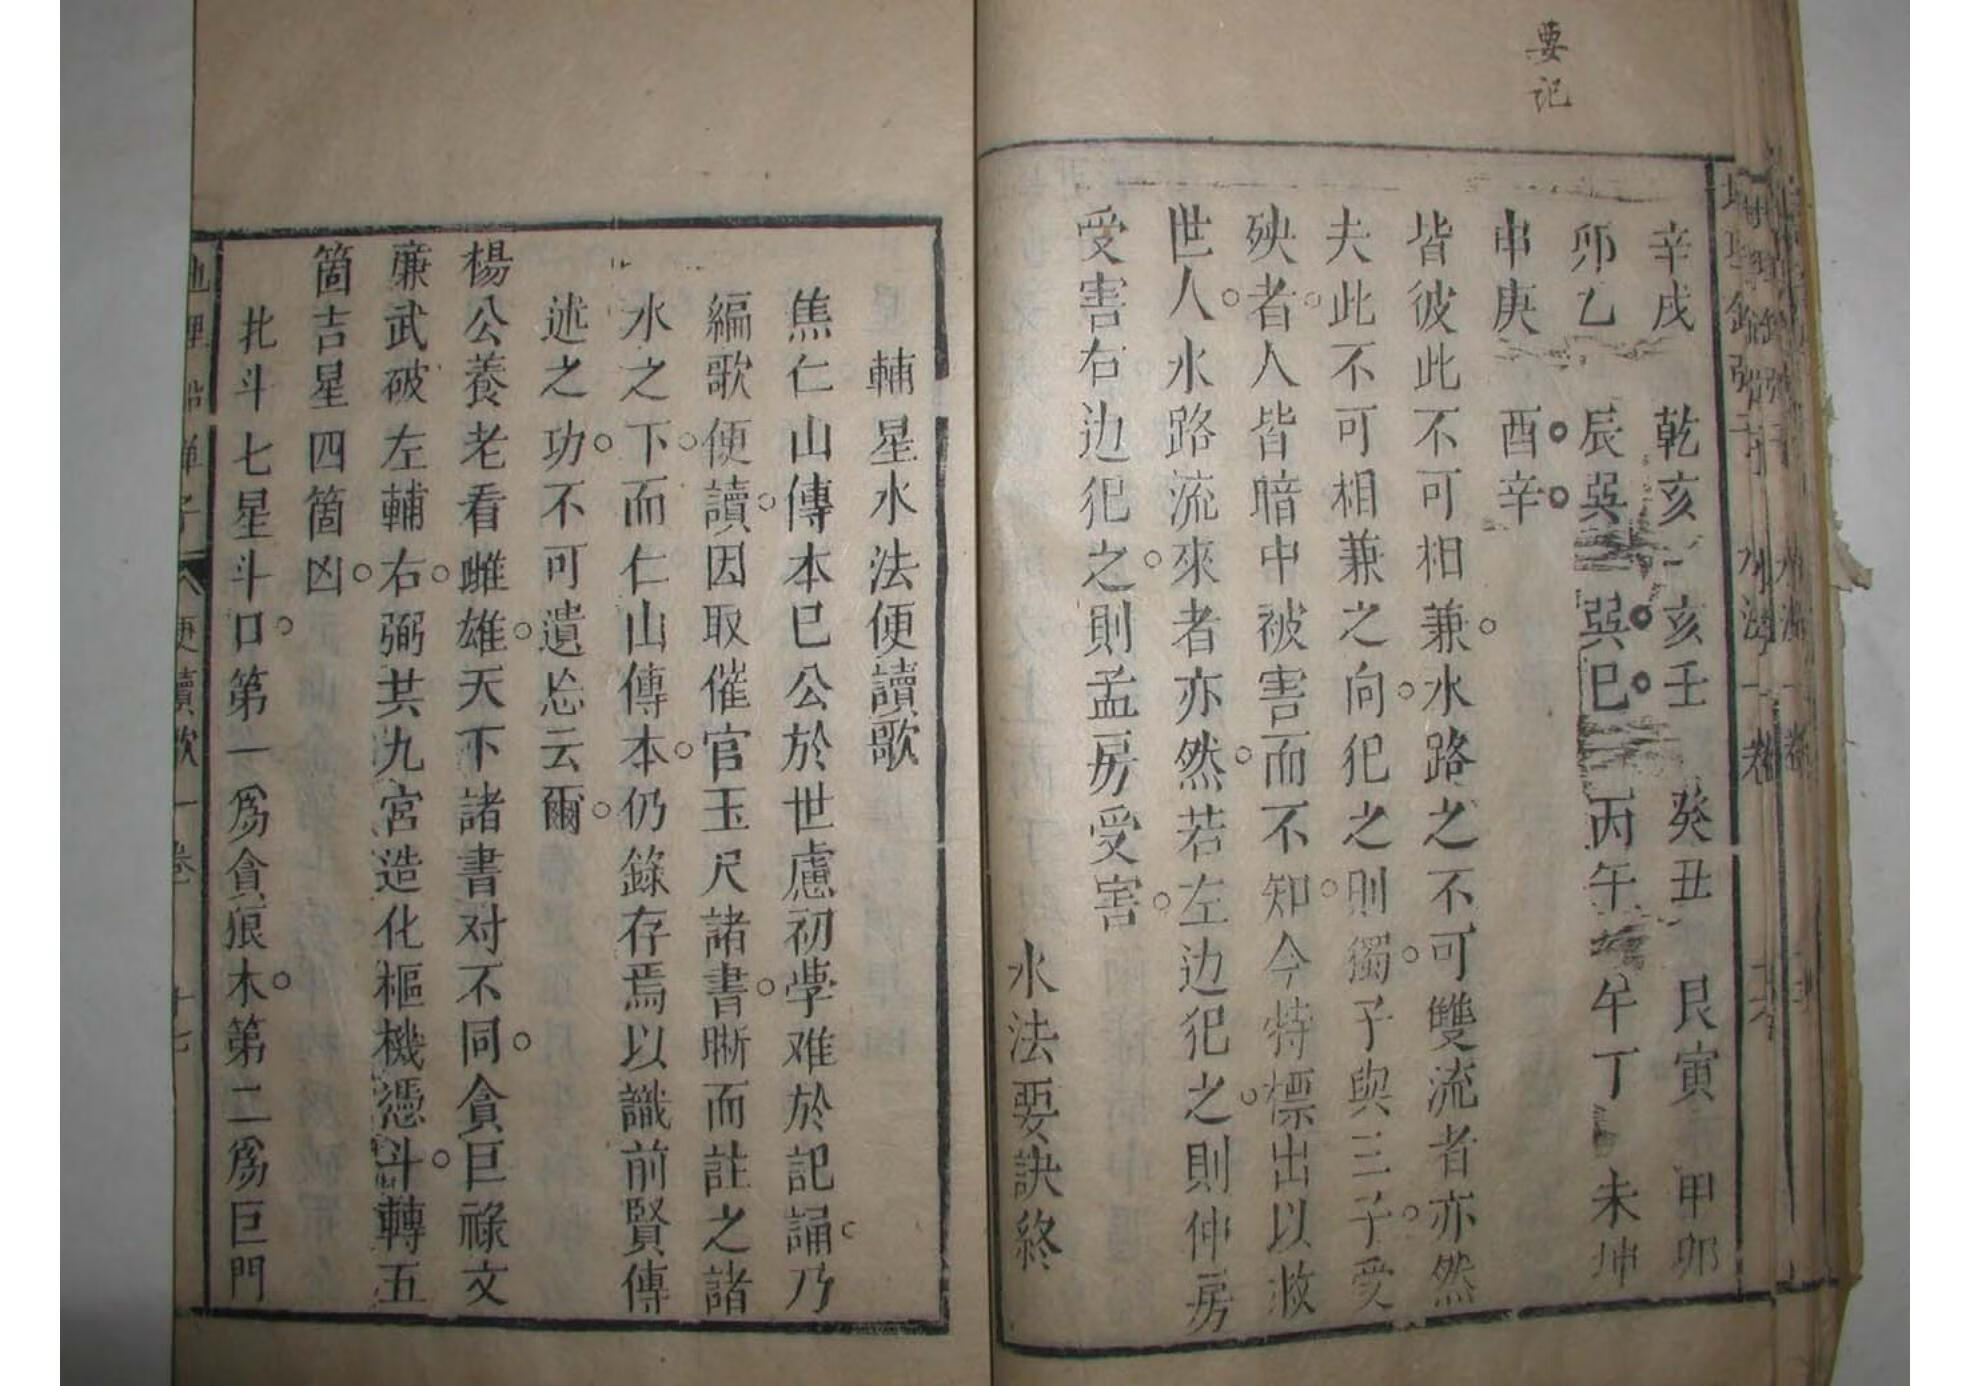 要记
辛戌 乾亥 亥壬 癸丑 艮寅 甲卯
卯乙 辰巽 巽巳 丙午 午丁 未坤
申庚 酉辛
皆彼此不可相兼。水路之不可雙流者亦然
夫此不可相兼之向。犯之則獨。子與三子。受
殃。者人皆暗中被害而不知。今特標出以救
世人。水路流來者亦然。若左边犯之。則仲房
受害右边犯之。則孟房受害。
水法要訣終
輔星水法便讀歌
焦仁山傳本已公於世慮初學难於記誦。乃
編歌便讀。因取催官玉尺諸書。晰而註之諸
水之下。而仁山傳本。仍錄存焉以識前賢傳
述之功。不可遺忘云爾。
楊公養老看雌雄。天下諸書对不同。貪巨祿文
廉武破左輔右。弼共九宮造化樞機憑斗。轉五
箇吉星四箇凶。
北斗七星斗口。第一為貪狼木。第二為巨門
便讀歌 一卷 十七